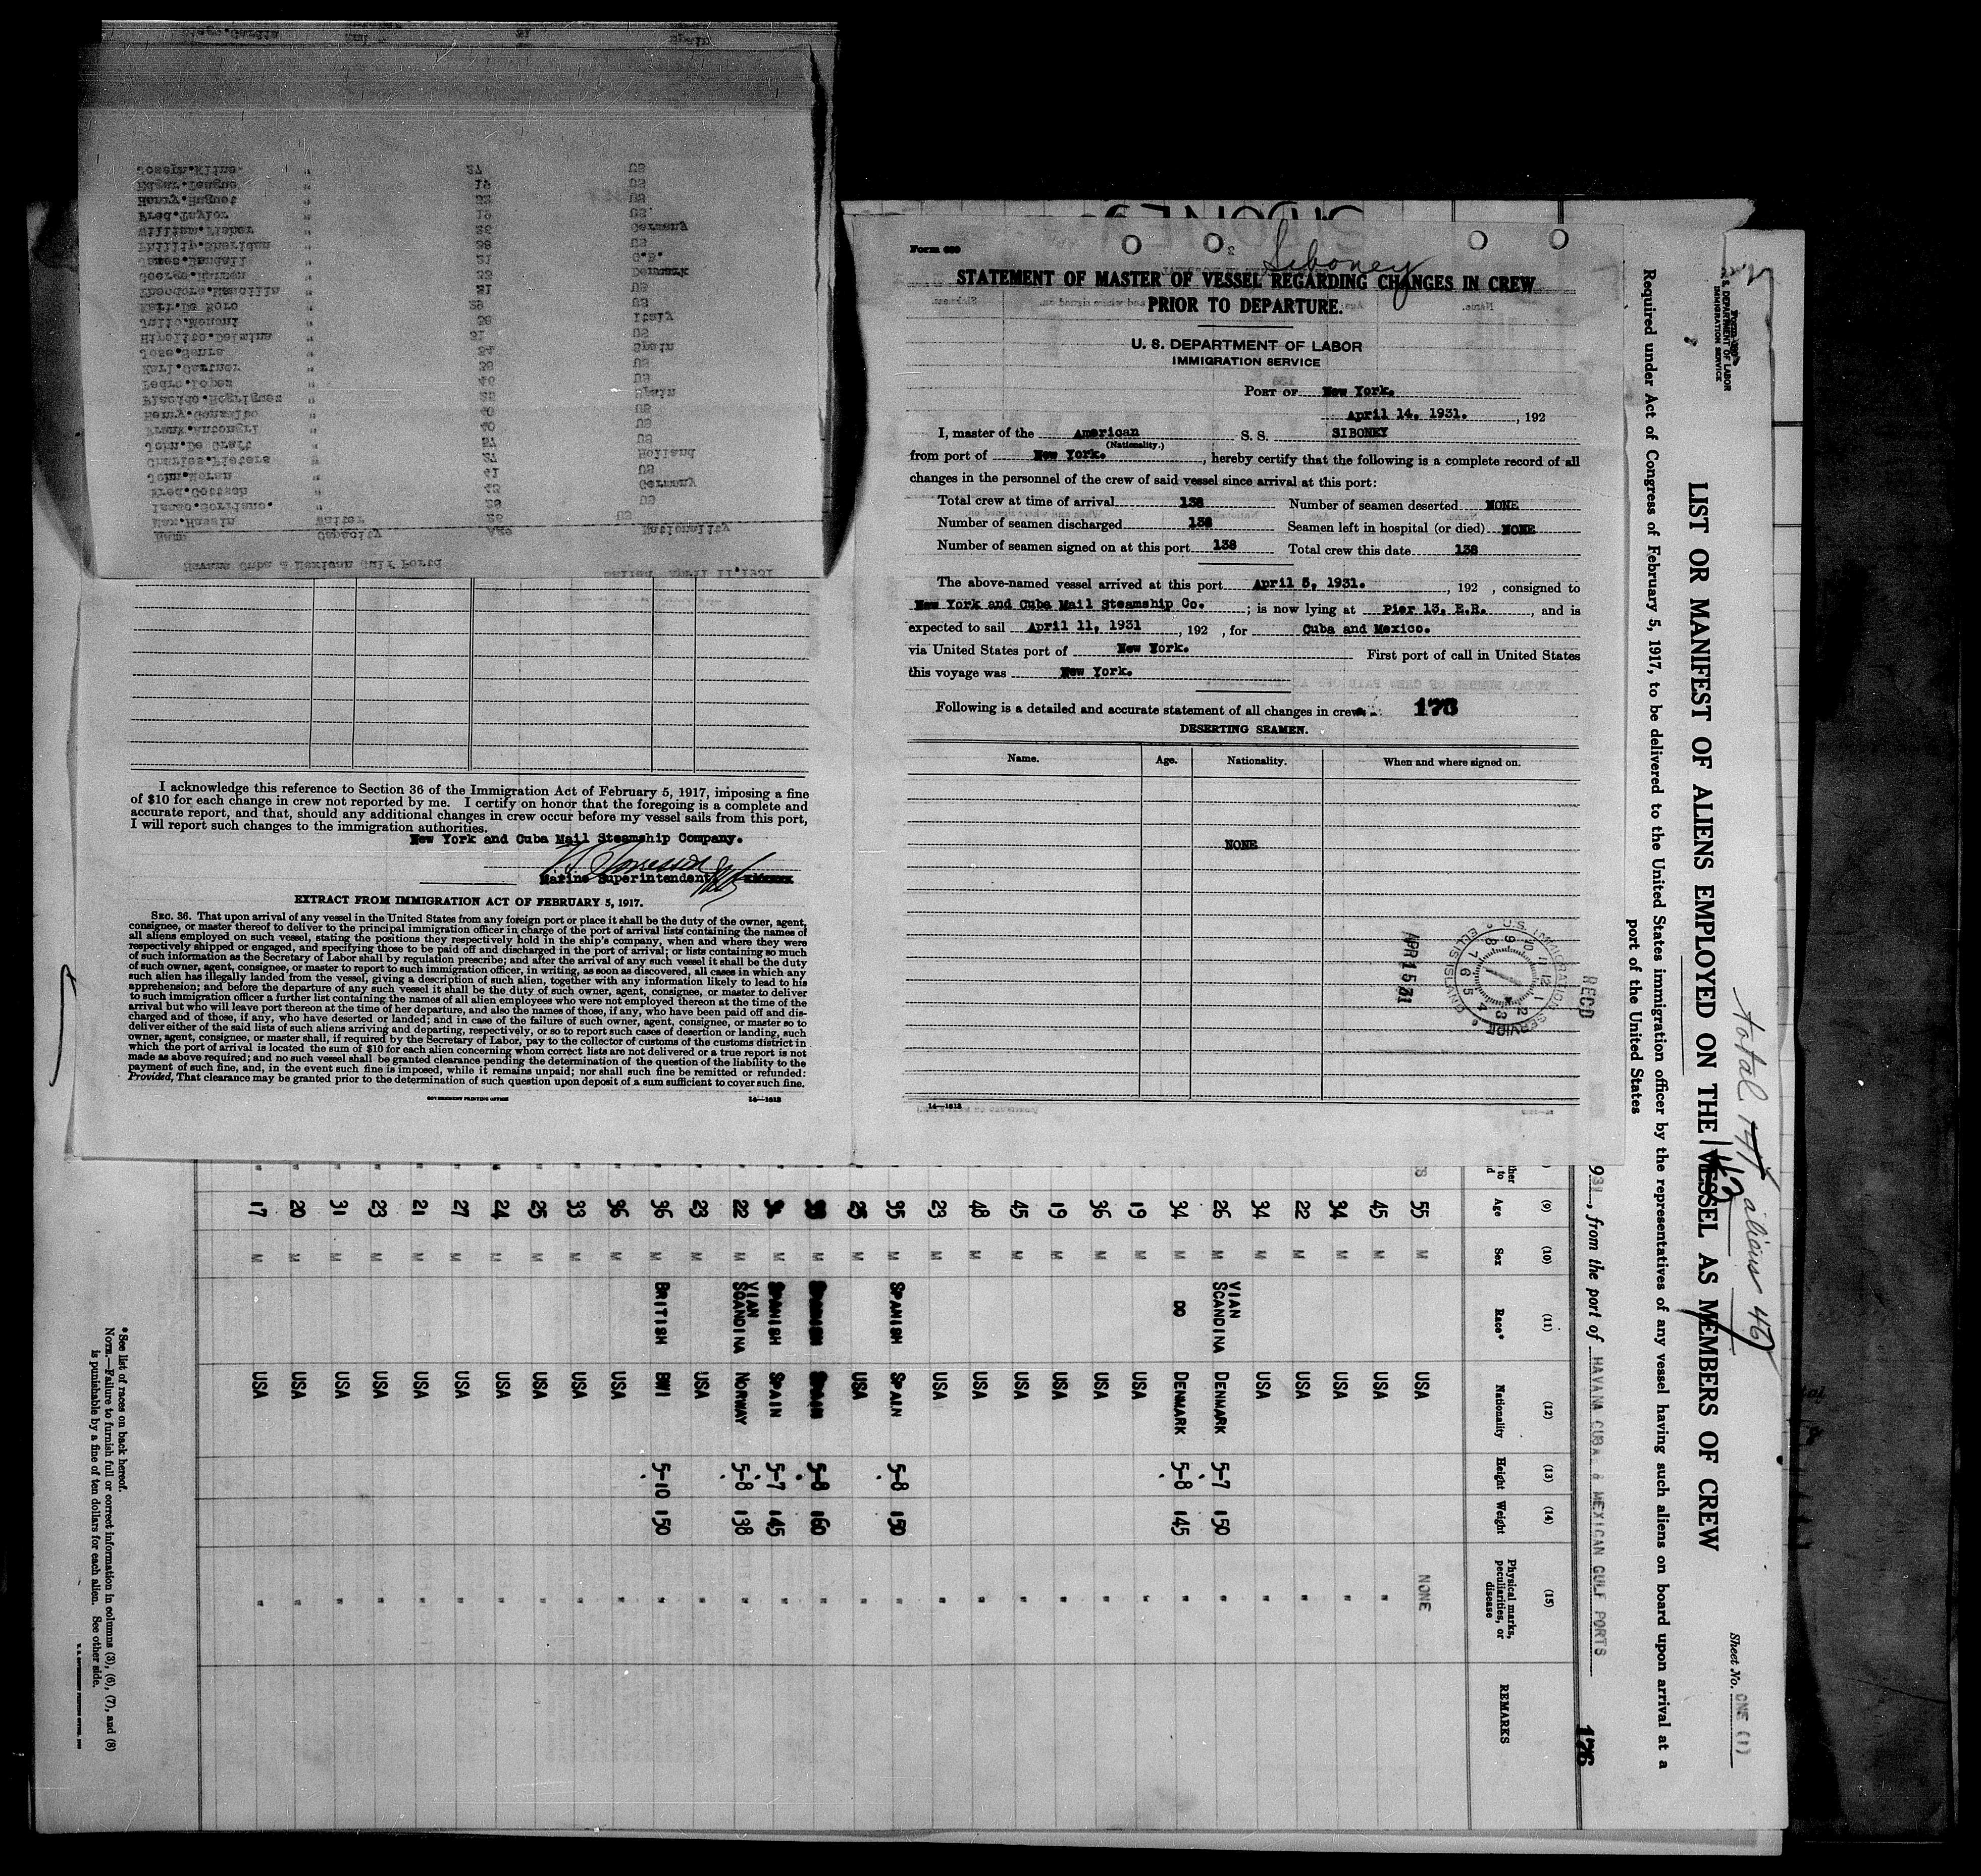 Form 689
Siboney
STATEMENT OF MASTER OF VESSEL REGARDING CHANGES IN CREW
PRIOR TO DEPARTURE.
U. S. DEPARTMENT OF LABOR
IMMIGRATION SERVICE
PORT OF New York.
April 14, 1931. , 192
I, master of the American S. S. SIBONEY
(Nationality.)
from port of New York. , hereby certify that the following is a complete record of all
changes in the personnel of the crew of said vessel since arrival at this port:
Total crew at time of arrival 138 Number of seamen deserted NONE
Number of seamen discharged 138 Seamen left in hospital (or died) NONE
Number of seamen signed on at this port 138 Total crew this date 138
The above-named vessel arrived at this port April 5, 1931. , 192 , consigned to
New York and Cuba Mail Steamship Co. ; is now lying at Pier 13, E.R. , and is
expected to sail April 11, 1931 , 192 , for Cuba and Mexico.
via United States port of New York. First port of call in United States
this voyage was New York.
Following is a detailed and accurate statement of all changes in crew 176
DESERTING SEAMEN.
Name. Age. Nationality. When and where signed on.
NONE
14—1613
RECD
U.S. IMMIGRATION SERVICE ELLIS ISLAND
APR 15 31
Havana Cuba & Mexican Gulf Ports Sailed April 11,1931
Name Capacity Age Nationality
Max.Hassin Waiter 26 US
Isaac.Sorriano. " 29 US
Fred.Gottsch " 43 Germany
John.Moran " 41 US
Charles.Pieters " 27 Holland
John.De Graff " 57 US
Frank.Antongri " 40 US
Henry.Gonzalbo " 40 US
Placido.Rodrigues " 25 Spain
Pedro.Lopez " 46 US
Karl.Gartner " 39 US
Jose.Sanra " 34 Spain
Hipolito.Delmina " 31 US
Julio.Monont " 38 Italy
Karl.De Koro " 29 US
Theodore.Mancilla " 31 US
George.Hannen " 33 Denmark
James.Randall " 21 G.B.
Phillip.Sheridan " 38 US
William.Fisher " 26 Germany
Fred.Taylor " 19 US
Henry.Huguet " 33 US
Edgar.Teague " 19 US
Joseph.Kline. " 27 US
Diego.Garcia 31 Spain
I acknowledge this reference to Section 36 of the Immigration Act of February 5, 1917, imposing a fine
of $10 for each change in crew not reported by me. I certify on honor that the foregoing is a complete and
accurate report, and that, should any additional changes in crew occur before my vessel sails from this port,
I will report such changes to the immigration authorities.
New York and Cuba Mail Steamship Company.
Marine Superintendent
EXTRACT FROM IMMIGRATION ACT OF FEBRUARY 5, 1917.
SEC. 36. That upon arrival of any vessel in the United States from any foreign port or place it shall be the duty of the owner, agent,
consignee, or master thereof to deliver to the principal immigration officer in charge of the port of arrival lists containing the names of
all aliens employed on such vessel, stating the positions they respectively hold in the ship's company, when and where they were
respectively shipped or engaged, and specifying those to be paid off and discharged in the port of arrival; or lists containing so much
of such information as the Secretary of Labor shall by regulation prescribe; and after the arrival of any such vessel it shall be the duty
of such owner, agent, consignee, or master to report to such immigration officer, in writing, as soon as discovered, all cases in which any
such alien has illegally landed from the vessel, giving a description of such alien, together with any information likely to lead to his
apprehension; and before the departure of any such vessel it shall be the duty of such owner, agent, consignee, or master to deliver
to such immigration officer a further list containing the names of all alien employees who were not employed thereon at the time of the
arrival but who will leave port thereon at the time of her departure, and also the names of those, if any, who have been paid off and dis-
charged and of those, if any, who have deserted or landed; and in case of the failure of such owner, agent, consignee, or master so to
deliver either of the said lists of such aliens arriving and departing, respectively, or so to report such cases of desertion or landing, such
owner, agent, consignee, or master shall, if required by the Secretary of Labor, pay to the collector of customs of the customs district in
which the port of arrival is located the sum of $10 for each alien concerning whom correct lists are not delivered or a true report is not
made as above required; and no such vessel shall be granted clearance pending the determination of the question of the liability to the
payment of such fine, and, in the event such fine is imposed, while it remains unpaid; nor shall such fine be remitted or refunded:
Provided, That clearance may be granted prior to the determination of such question upon deposit of a sum sufficient to cover such fine.
GOVERNMENT PRINTING OFFICE 14—1613
U. S. DEPARTMENT OF LABOR
IMMIGRATION SERVICE
Sheet No. ONE (1)
total aliens 46
LIST OR MANIFEST OF ALIENS EMPLOYED ON THE VESSEL AS MEMBERS OF CREW
Required under Act of Congress of February 5, 1917, to be delivered to the United States immigration officer by the representatives of any vessel having such aliens on board upon arrival at a
port of the United States
931 , from the port of HAVANA CUBA. & MEXICAN GULF PORTS
176
(9) (10) (11) (12) (13) (14) (15)
Age Sex Race* Nationality Height Weight Physical marks, peculiarities, or disease REMARKS
55 M USA NONE
45 M USA "
34 M USA "
22 M USA "
34 M USA "
26 M SCANDINAVIAN DENMARK 5-7 150 "
34 M DO DENMARK 5-8 145 "
19 M USA "
36 M USA "
19 M USA "
45 M USA "
48 M USA "
23 M USA "
35 M SPANISH SPAIN 5-8 150 "
25 M USA "
M SPANISH SPAIN 5-8 160 "
M SPANISH SPAIN 5-7 145 "
22 M SCANDINAVIAN NORWAY 5-8 138 "
23 M USA "
36 M BRITISH BWI 5-10 150 "
36 M USA "
33 M USA "
25 M USA "
24 M USA "
27 M USA "
21 M USA "
23 M USA "
31 M USA "
20 M USA "
17 M USA "
*See list of races on back hereof.
NOTE.—Failure to furnish full or correct information in columns (3), (6), (7), and (8)
is punishable by a fine of ten dollars for each alien. See other side.